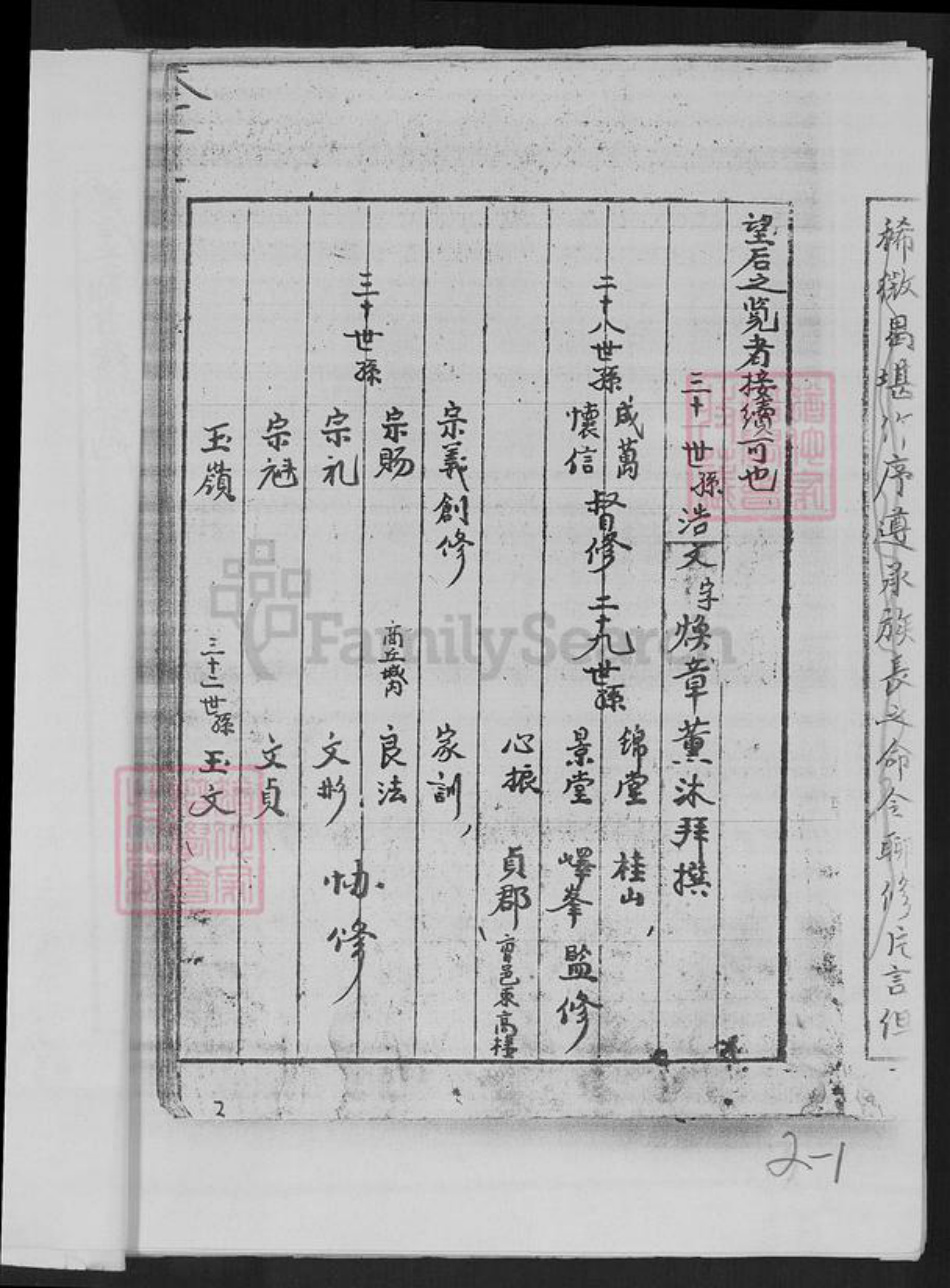 稀微曷堪作序遵承族長之命令聊修片言但
望后之览者接續可也
三十世孫浩文字焕章薰沐拜撰
二十八世孫
成萬
懷信
督修
二十九世孫
锦堂 桂山
景堂 峄峯
心振 貞郡 曹邑東高楼
監修
三十世孫
宗義創修 家訓
宗賜 商丘城内 良法
宗礼 文彤
宗魁 文貞
玉嶺 三十二世孫 玉文
协修
2
2-1
FamilySearch